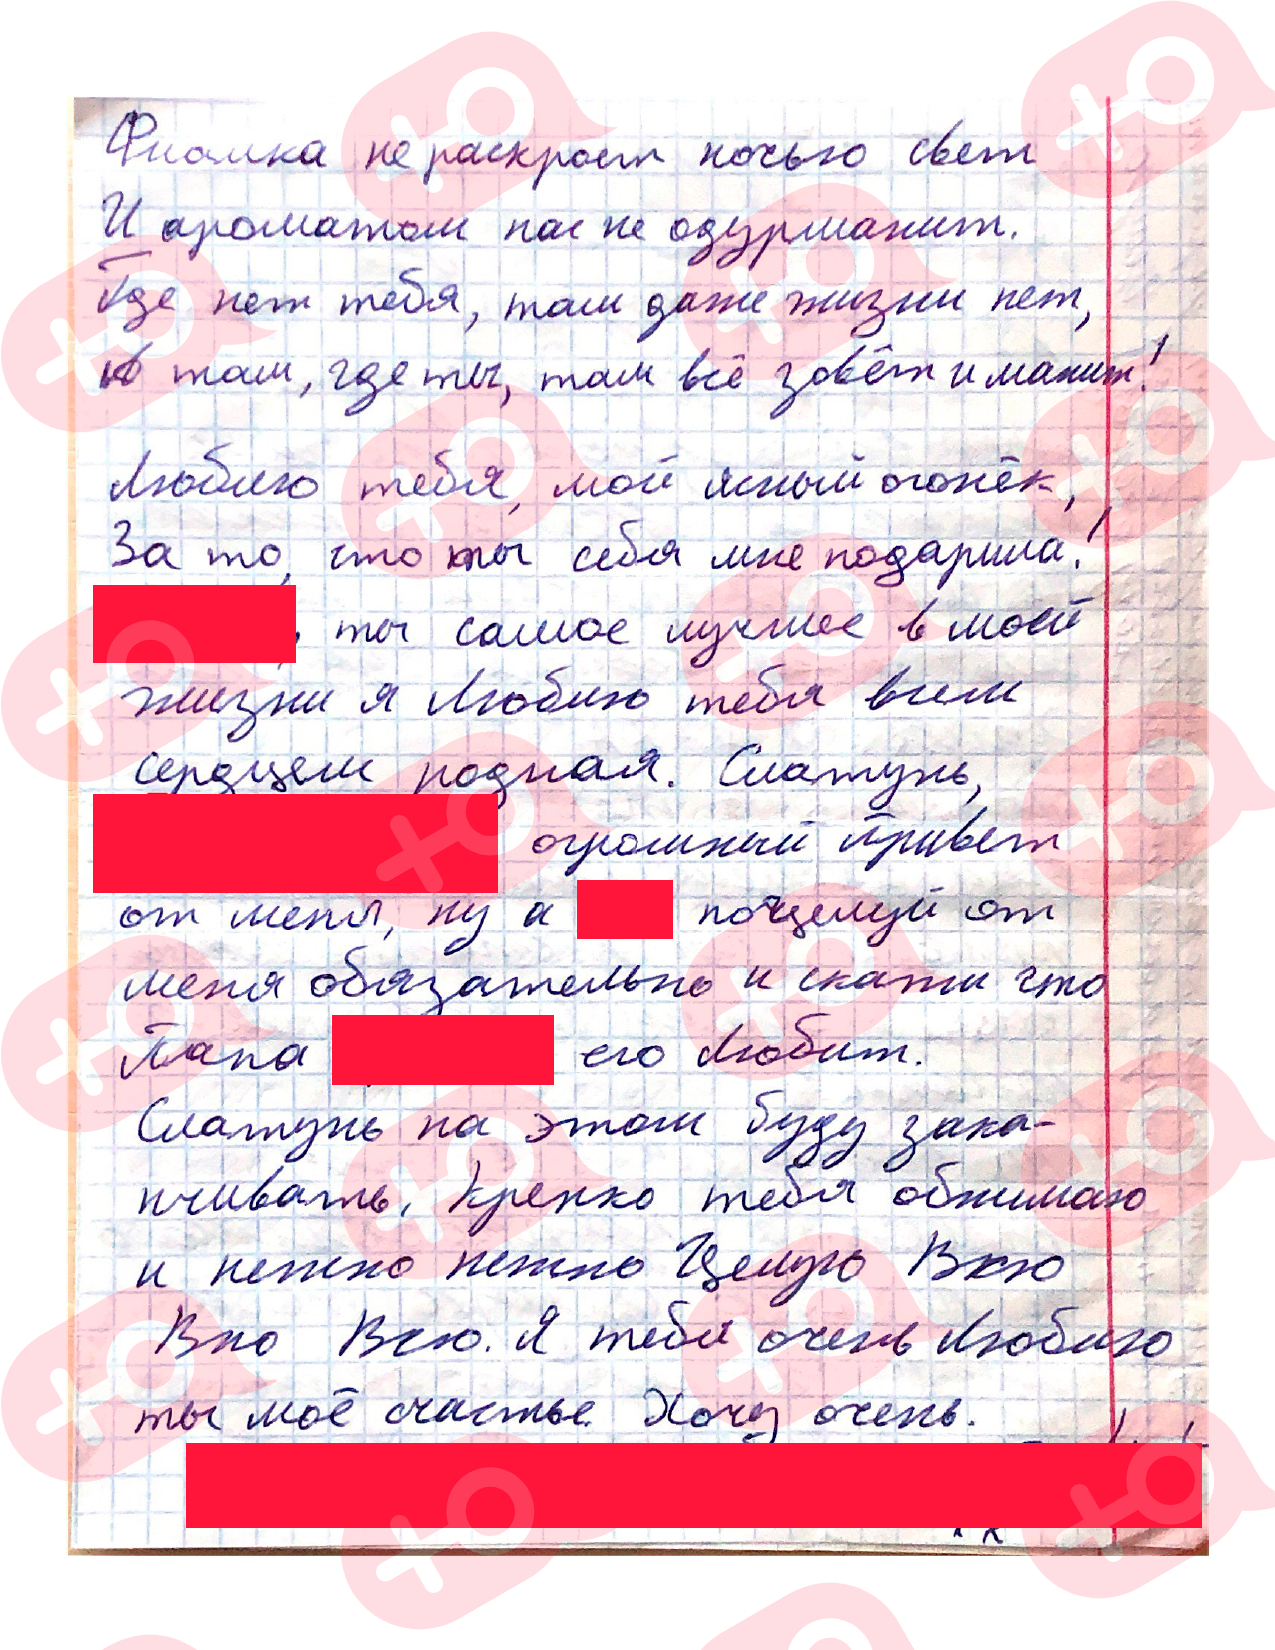 Фиалка не раскроет ночью свет
И ароматом нас не одурманит.
Где нет тебя, там даже жизни нет,
А там, где ты, там всё зовёт и манит!
Люблю тебя, мой ясный огонёк,
За то, что ты себя мне подарила!
, ты самое лучшее в моей
жизни я Люблю тебя всем
сердцем родная. Слатунь,
огромный Привет
от меня, ну а поцелуй от
меня обязательно и скажи что
Папа его Любит.
Слатунь на этом буду зака-
нчивать. Крепко тебя обнимаю
и нежно нежно Целую Всю
Всю Всю. Я тебя очень Люблю
ты моё счастье. Хочу очень.